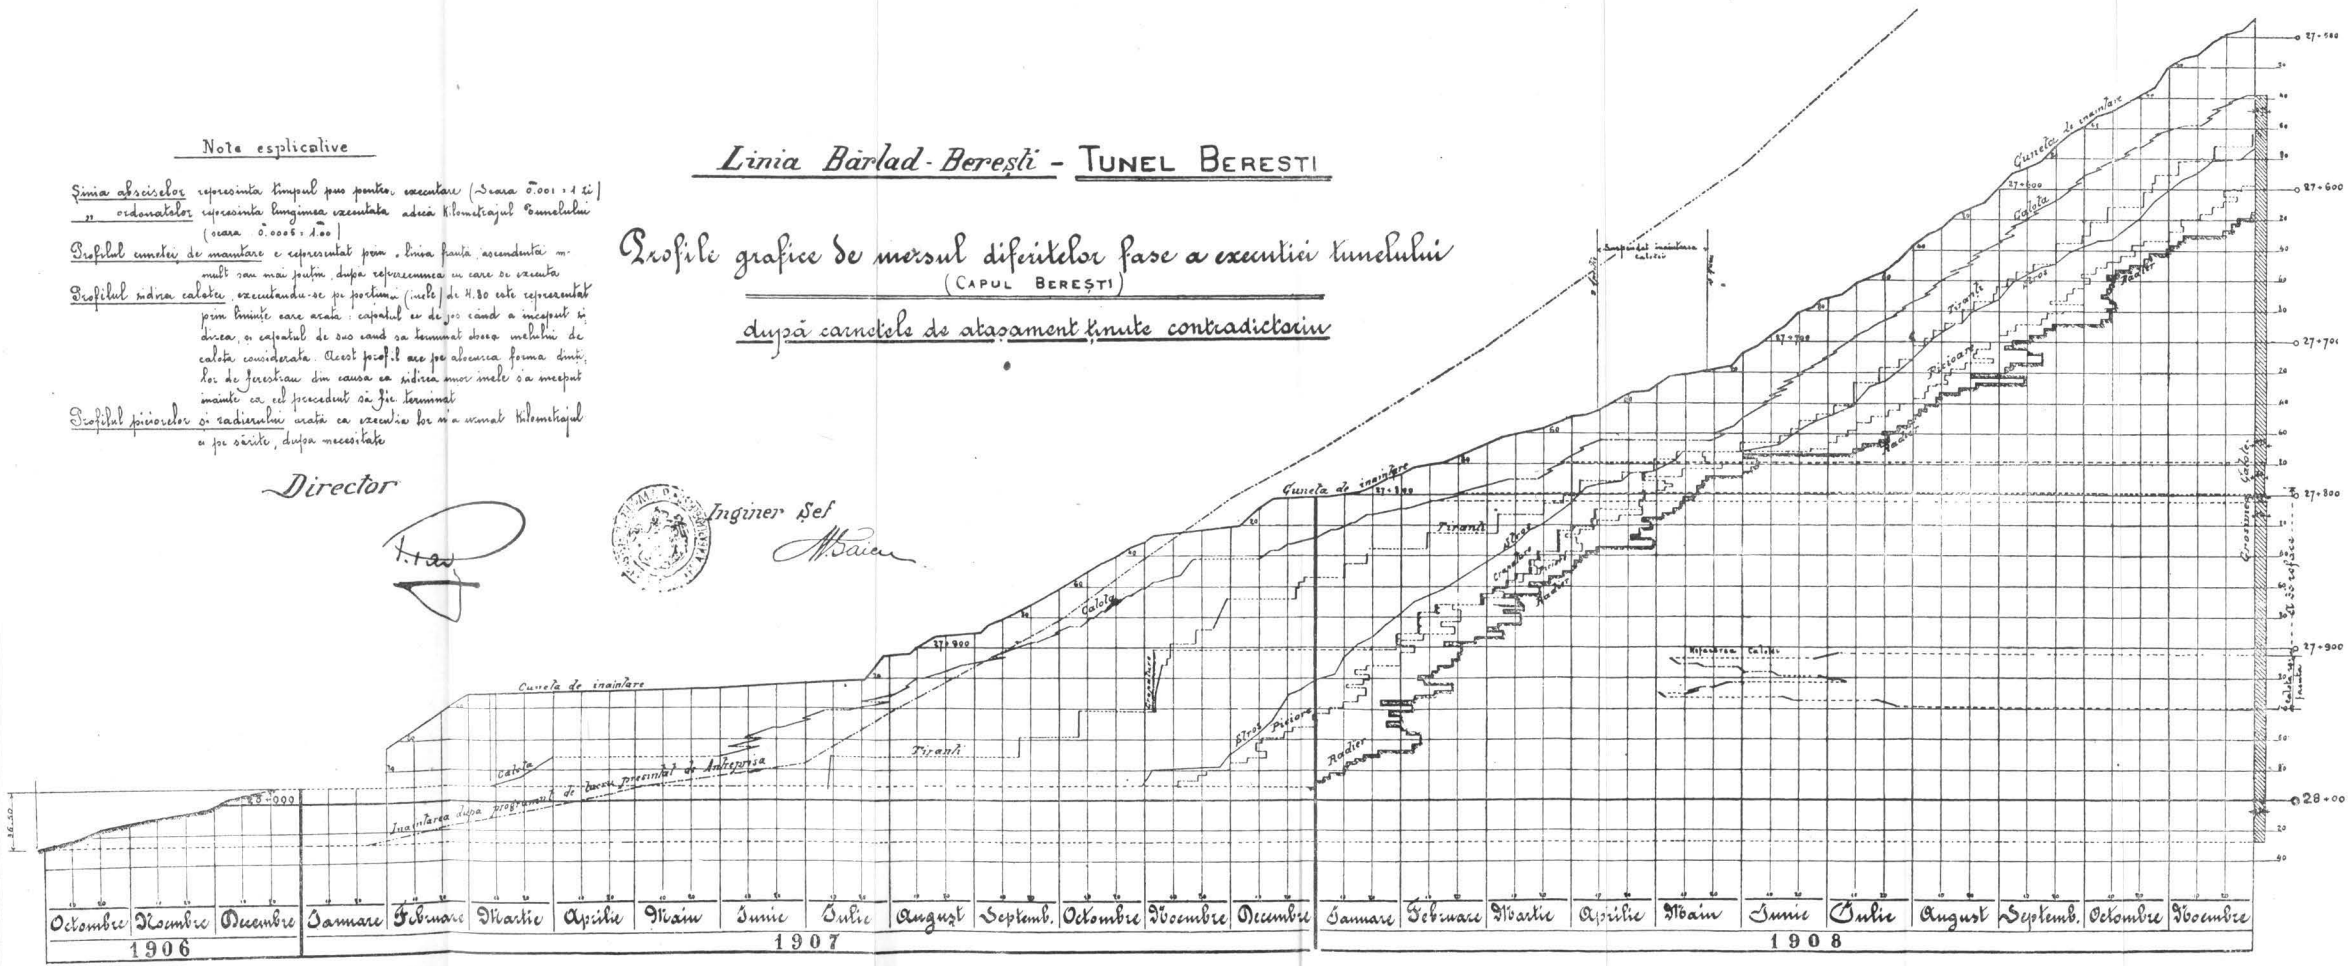 Note esplicative
Linia absciselor represinta timpul pus pentru executare (Scara 0.001 = 1 zi)
" ordonatelor represinta lungimea executata adică Kilometrajul Tunelului
(scara 0.0005 = 1.00)
Profilul cunetei de inaintare e representat prin o linie franta, ascendenta m-
mult sau mai putin, dupa repeziciunea cu care se executa
Profilul zidirei calotei, executandu-se pe portiuni (inele) de 4.80 este representat
prin liniuțe care arata: capatul cu de jos când a inceput zi-
direa, si capatul de sus cand sa terminat
calota considerata. Acest profil are pe alocurea forma dinti-
lor de ferestrau din causa ca zidirea unor inele s'a inceput
inainte ca cel precedent să fie terminat
Profilul picioarelor si radierului arată ca executia lor n'a urmat Kilometrajul
ci pe sărite, dupa necesitate
Director
Inginer Șef
Linia Bârlad-Berești - TUNEL BERESTI
Profile grafice de mersul diferitelor fase a executiei tunelului
(CAPUL BEREȘTI)
după carnetele de atașament ținute contradictoriu
Suspendat inaintarea
calotei
Cuneta de inaintare
27+500
27+600
Calota
27+600
Tiranti
Stros
Radier
27+700
27+700
Picioare
Radier
Cuneta de inaintare
27+800
27+800
Tiranti
Stros
Radier
Grosimea Calotei
Calota
27+900
27+900
Refacerea Calotei
Cuneta de inaintare
Calota
Tiranti
Stros
Picioare
Radier
Inaintarea dupa programul de lucru presintat de Antrepriza
28+000
28+00
36.50
Octombre Noembre Decembre Ianuare Februare Martie Aprilie Main Iunie Iulie August Septemb. Octombre Noembre Decembre Ianuare Februare Martie Aprilie Main Iunie Iulie August Septemb. Octombre Noembre
1906 1907 1908